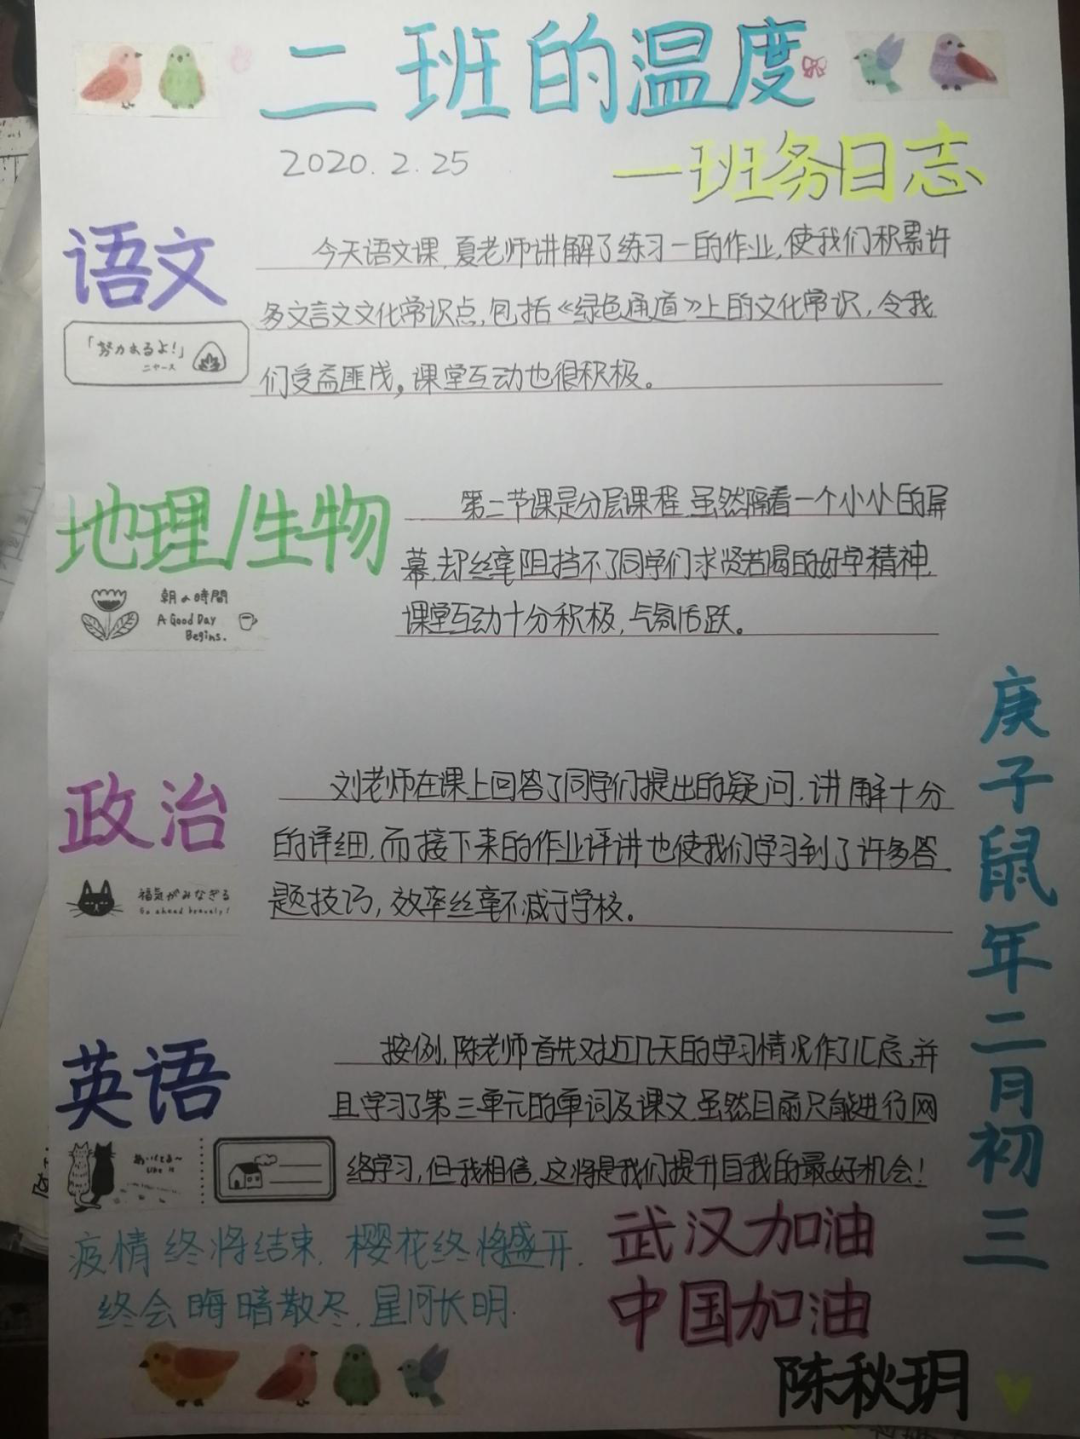 二班的温度
2020.2.25
一班务日志
语文
今天语文课,夏老师讲解了练习一的作业,使我们积累许
多文言文文化常识点,包括《绿色通道》上的文化常识,令我
们受益匪浅,课堂互动也很积极。
「努力あるよ!」
ニャース
地理/生物
第二节课是分层课程,虽然隔着一个小小的屏
幕,却丝毫阻挡不了同学们求贤若渴的好学精神,
课堂互动十分积极,气氛活跃。
朝の時間
A Good Day
Begins.
政治
刘老师在课上回答了同学们提出的疑问,讲解十分
的详细,而接下来的作业评讲也使我们学习到了许多答
题技巧,效率丝毫不减于学校。
福気がみなぎる
Go ahead bravely!
英语
按例,陈老师首先对近几天的学习情况作了汇总,并
且学习了第三单元的单词及课文,虽然目前只能进行网
络学习,但我相信,这将是我们提升自我的最好机会!
Like it
疫情终将结束,樱花终将盛开,
终会晦暗散尽,星河长明.
武汉加油
中国加油
陈秋玥
庚子鼠年二月初三